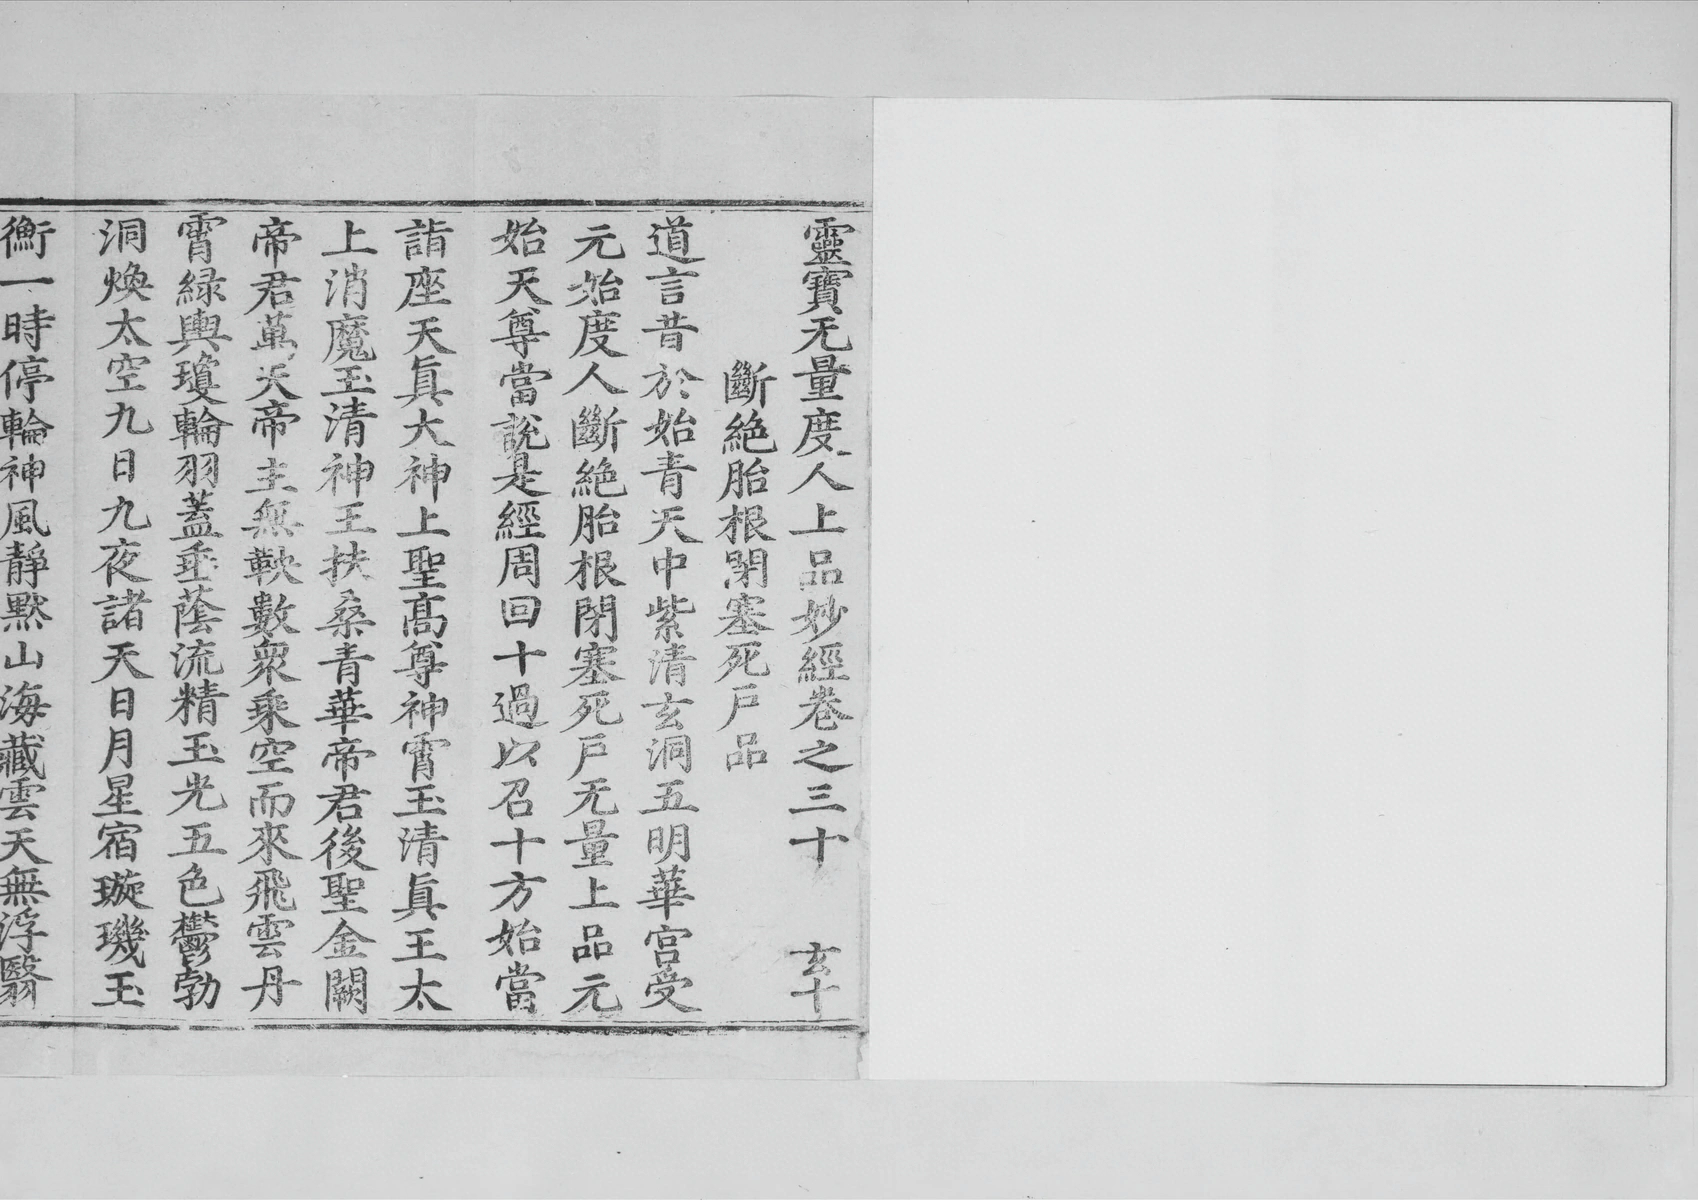 靈寶无量度人上品妙經卷之三十　玄十
斷絶胎根閉塞死戶品
道言昔於始青天中紫清玄洞五明華宮受
元始度人斷絶胎根閉塞死戶无量上品元
始天尊當說是經周回十過以召十方始當
詣座天眞大神上聖髙尊神霄玉清眞王太
上消魔玉清神王扶桑青華帝君後聖金闕
帝君萬天帝主無鞅數衆乘空而來飛雲丹
霄緑輿瓊輪羽蓋垂蔭流精玉光五色鬱勃
洞煥太空九日九夜諸天日月星宿璇璣玉
衡一時停輪神風靜默山海藏雲天無浮翳